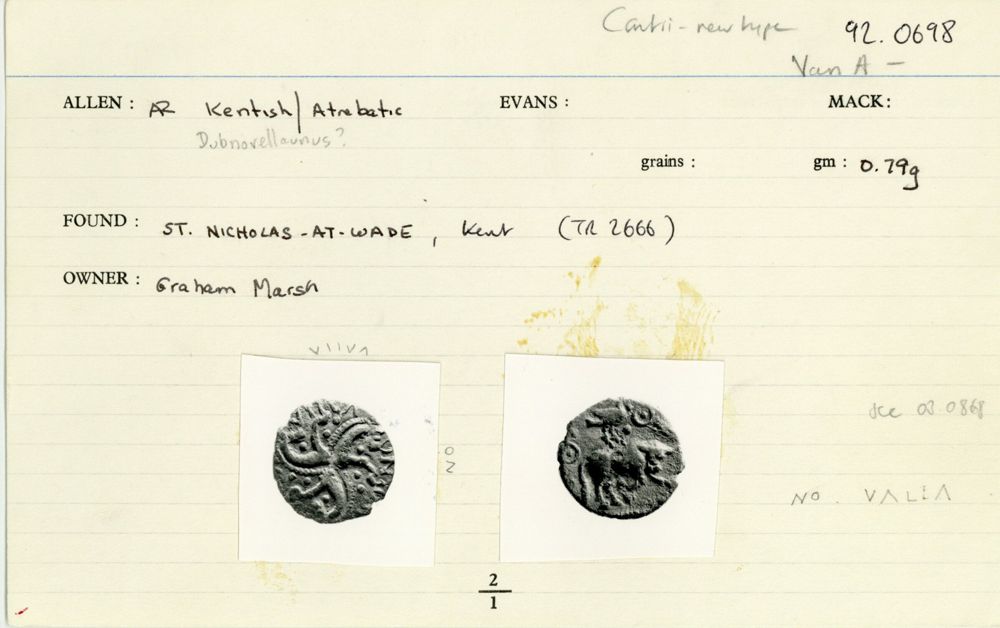 Cantii - new type
92.0698
Van A -
ALLEN : AR Kentish / Atrebatic
EVANS :
MACK:
Dubnovellaunus?
grains :
gm : 0.79g
FOUND : ST. NICHOLAS-AT-WADE, Kent (TR 2666)
OWNER : Graham Marsh
VIIVΛ
see 03.0868
NO
NO. VΛLIΛ
2
1